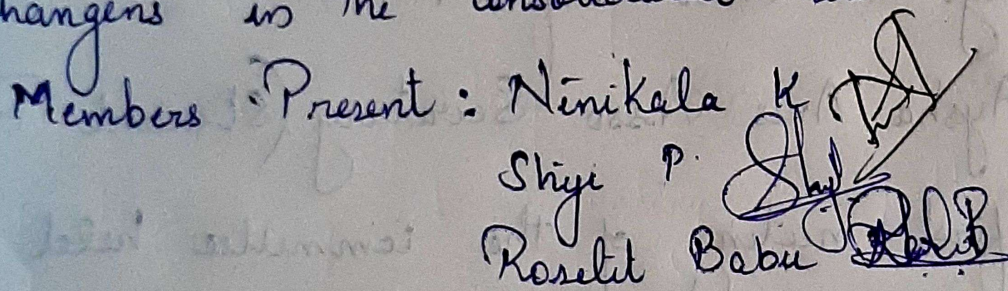 in the
Members Present : Ninikala K
Shiji P.
Roselit Babu